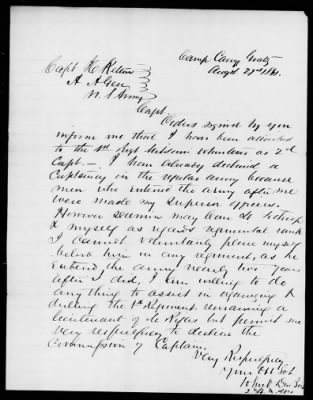 Camp Cary Gratz
Augt 27th 1861.
Capt. Kelton
A. A. Gen
U. S. Army
Capt.
Orders signed by you
inform me that I have been attached
to the 1st Regt Missouri Volunteers as 2d
Capt. — I have already declined a
Captaincy in the regular army because
men who entered the army after me
were made my superior officers.
However may be
to myself as regards regimental rank
I cannot voluntarily place myself
below him in any regiment, as he
entered the army nearly two years
after I did, I am willing to do
anything to assist in organizing &
drilling the 1st Regiment remaining a
lieutenant of but permit me
very respectfully to decline the
commission of Captain.
Very Respectfully
Your Obt Svt
2d